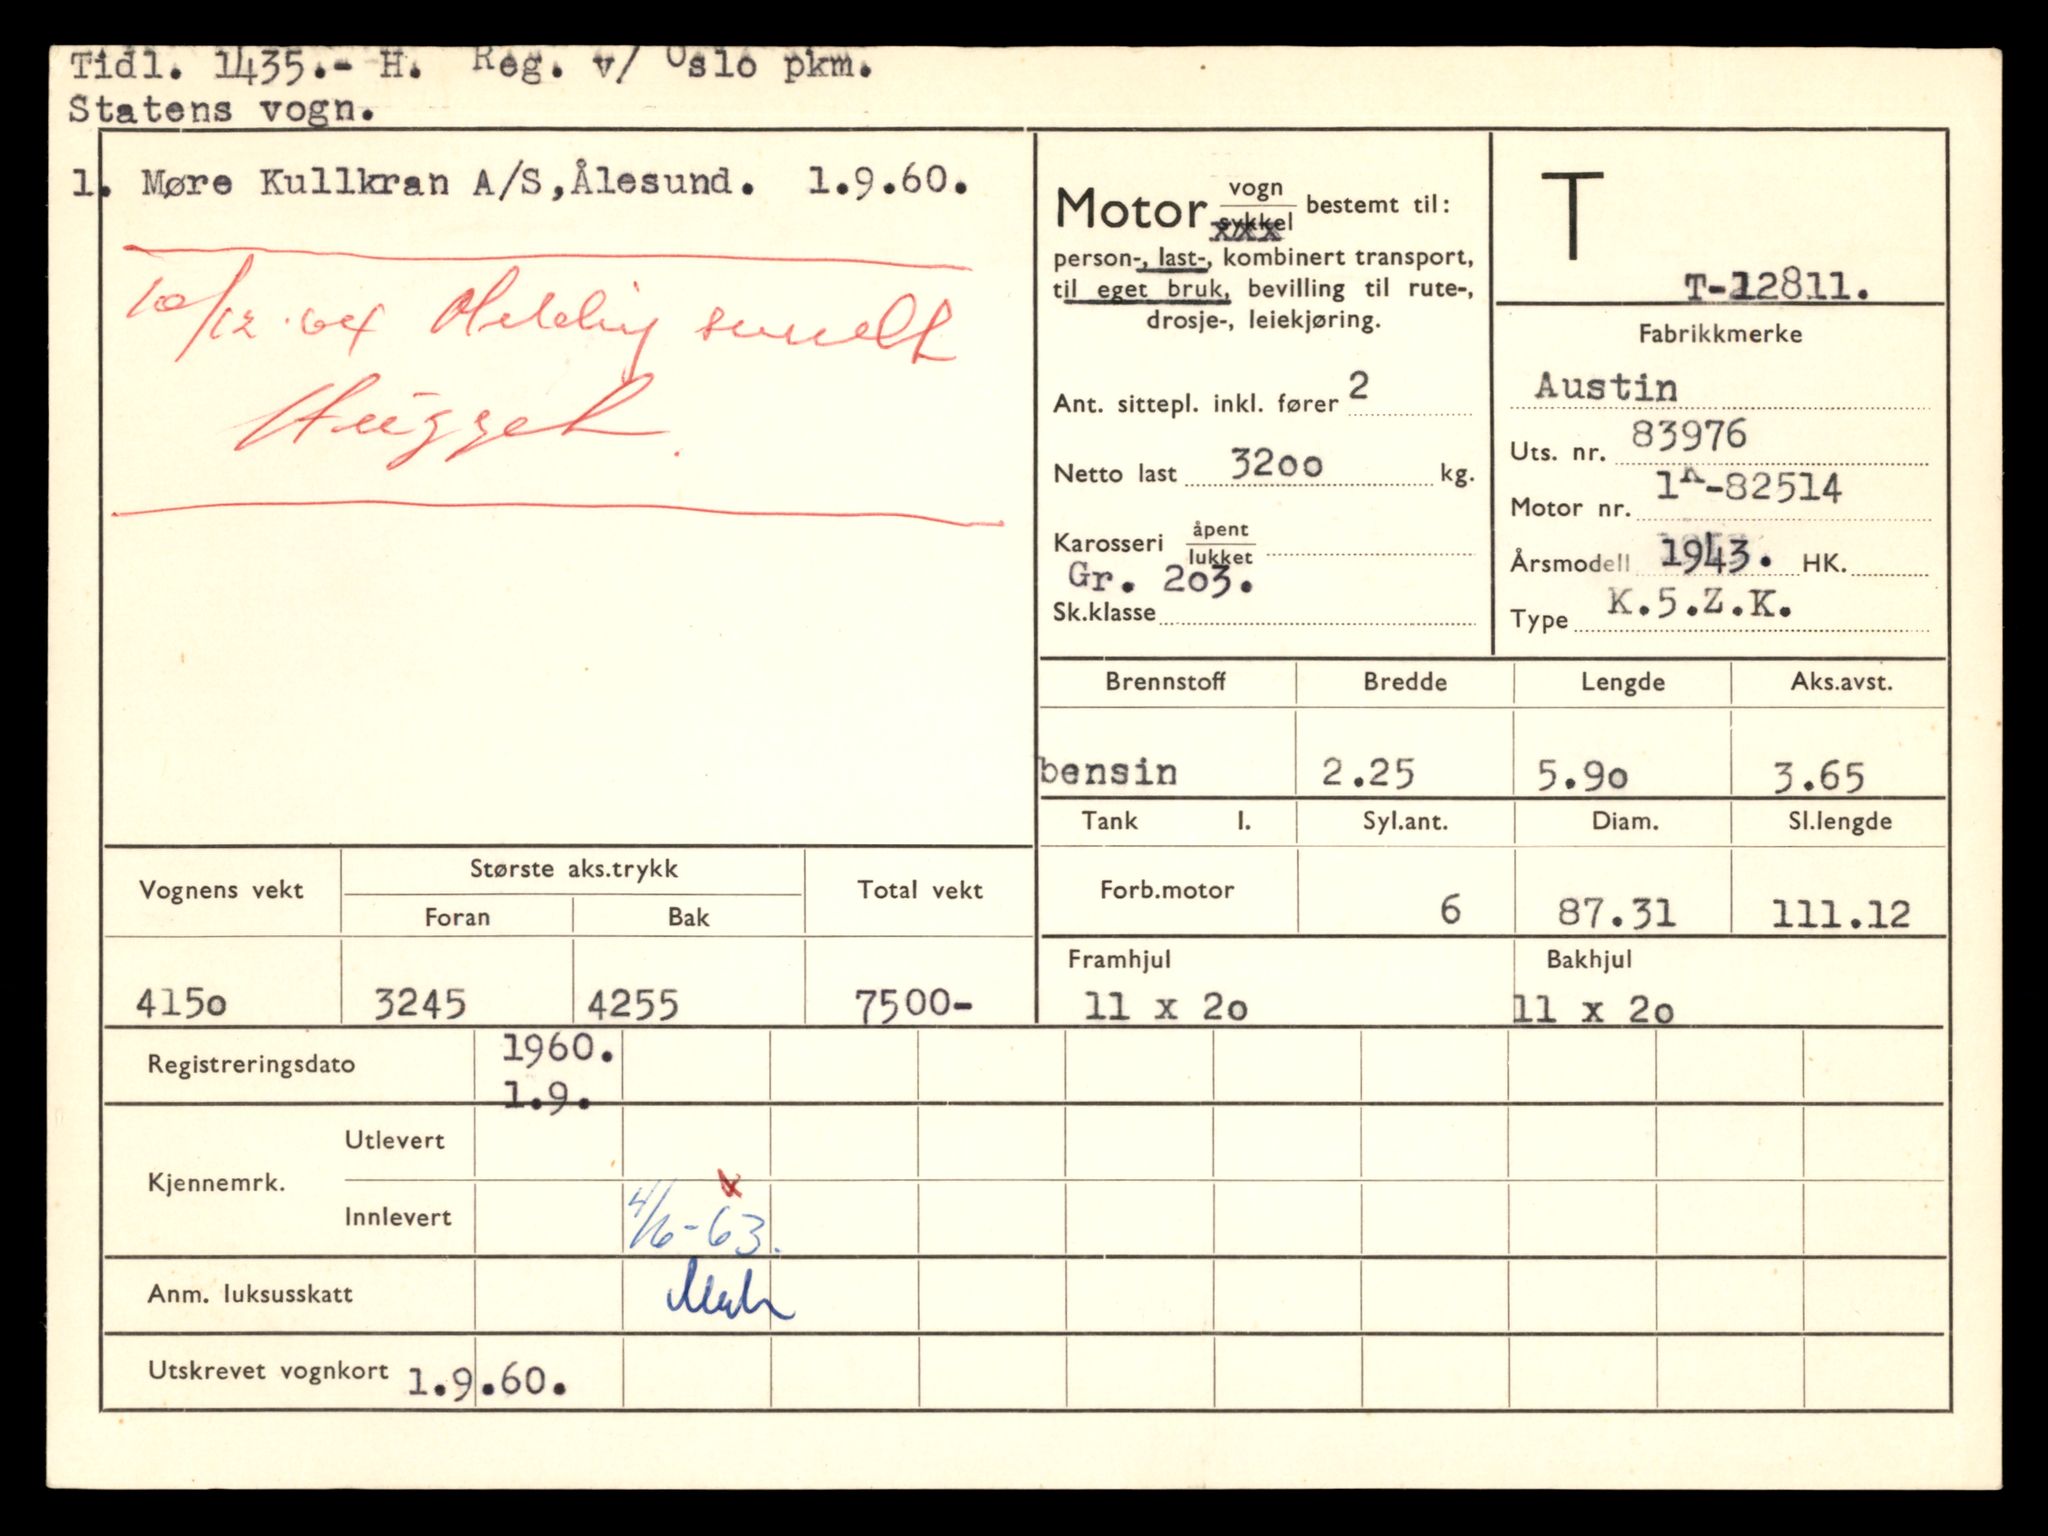 Tidl. 1435.- H. Reg. v/ Oslo pkm.
Statens vogn.
1. Møre Kullkran A/S,Ålesund. 1.9.60.
10/12.64 Melding sendt
Hugget.
Motor vogn/sykkel bestemt til:
xxx
person-, last-, kombinert transport,
til eget bruk, bevilling til rute-,
drosje-, leiekjøring.
Ant. sittepl. inkl. fører 2
Netto last 3200 kg.
Karosseri åpent/lukket
Gr. 203.
Sk.klasse
T
T-12811.
Fabrikkmerke
Austin
Uts. nr. 83976
Motor nr. 1K-82514
Årsmodell 1943. HK.
Type K.5.Z.K.
Brennstoff Bredde Lengde Aks.avst.
bensin 2.25 5.90 3.65
Tank l. Syl.ant. Diam. Sl.lengde
Forb.motor 6 87.31 111.12
Framhjul Bakhjul
11 x 20 11 x 20
Vognens vekt Største aks.trykk Total vekt
Foran Bak
4150 3245 4255 7500-
Registreringsdato 1960.
1.9.
Kjennemrk. Utlevert
Innlevert 4/6-63. x
Anm. luksusskatt
Utskrevet vognkort 1.9.60.